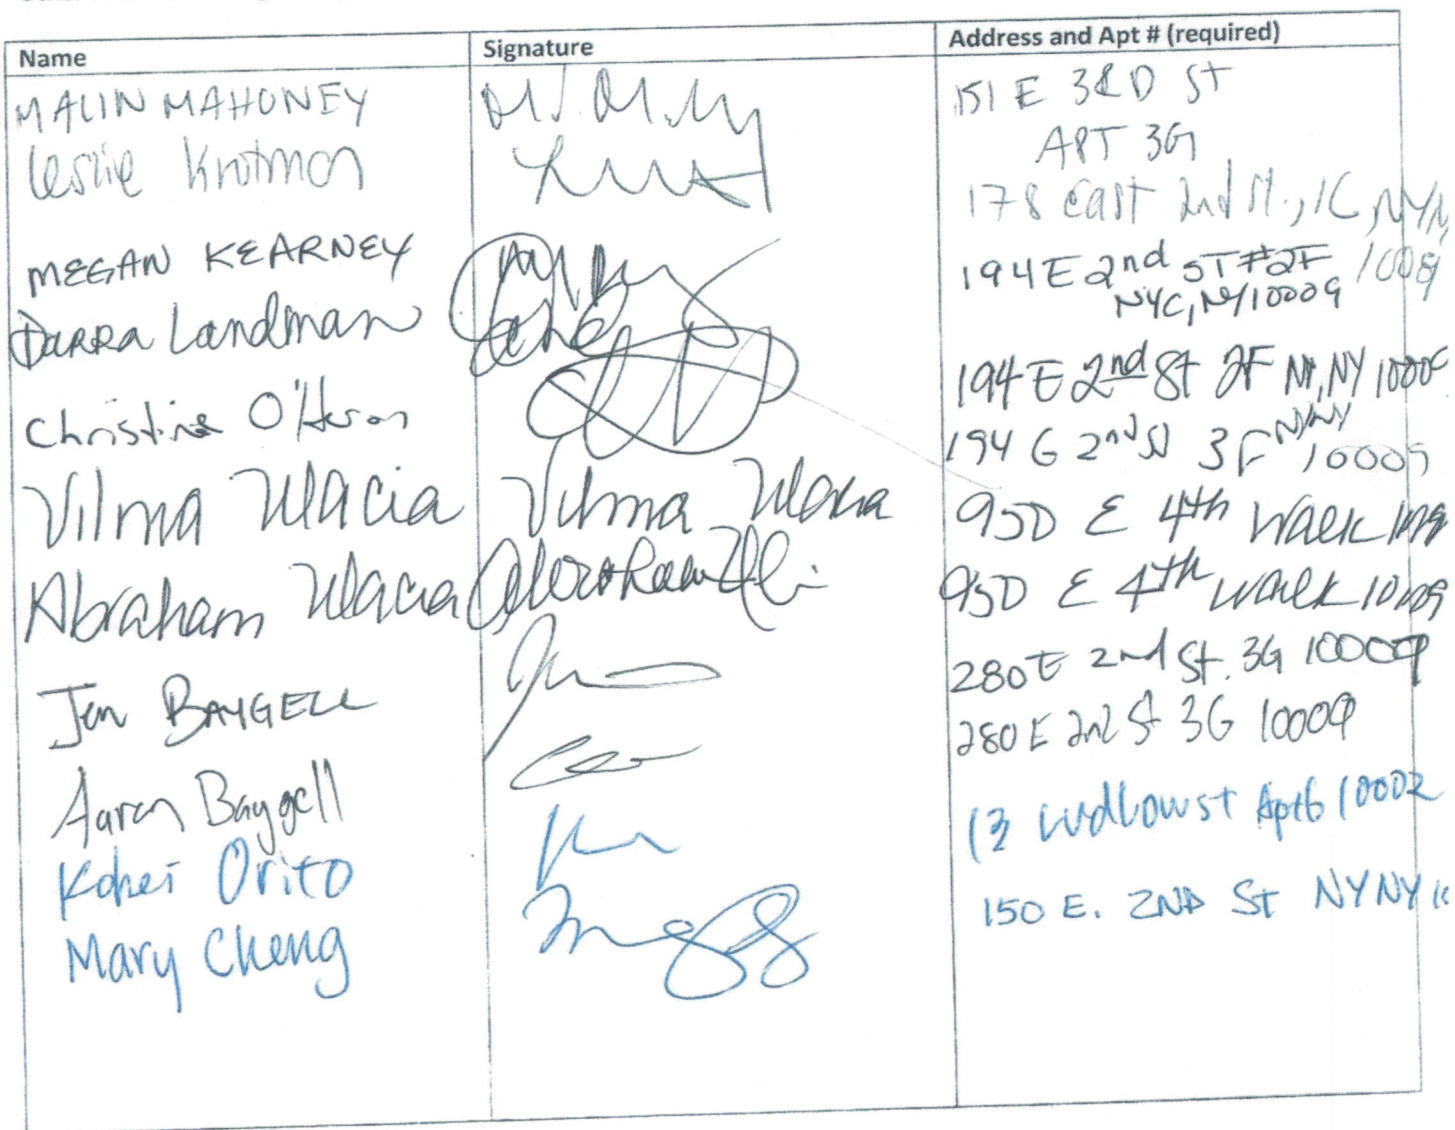 Name Signature Address and Apt # (required)
MALIN MAHONEY 151 E 3RD ST
APT 3G
Leslie Krotman 178 East 2nd St., 1C, NY, NY,
10009
MEGAN KEARNEY 194 E 2nd ST #2F
NYC, NY 10009
DARRA Landman 194 E 2nd St 2F NY, NY 1000
Christine O'Heron 194 E 2nd St 3F NY NY
10009
Vilma Ulacia Vilma Ulacia 95D E 4th Walk
Abraham Ulacia Abraham 95D E 4th Walk
Jen BAYGELL 280 E 2nd St. 3G 10009
Aaron Baygell 280 E 2nd St 3G 10009
Kohei Orito 13 Ludlow st Apt6 10002
Mary Cheng 150 E. 2ND St NY NY